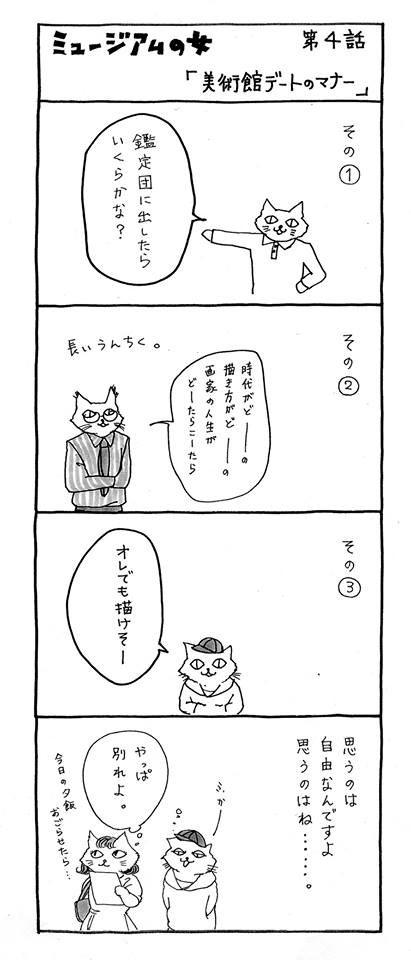 ミュージアムの女
第4話
「美術館デートのマナー」
その①
鑑定団に出したら
いくらかな？
その②
長いうんちく。
時代がどーの
描き方がどーの
画家の人生が
どーたらこーたら
その③
オレでも描けそー
思うのは
自由なんですよ
思うのはね……。
やっぱ
別れよ。
今日の夕飯
おごらせたら…